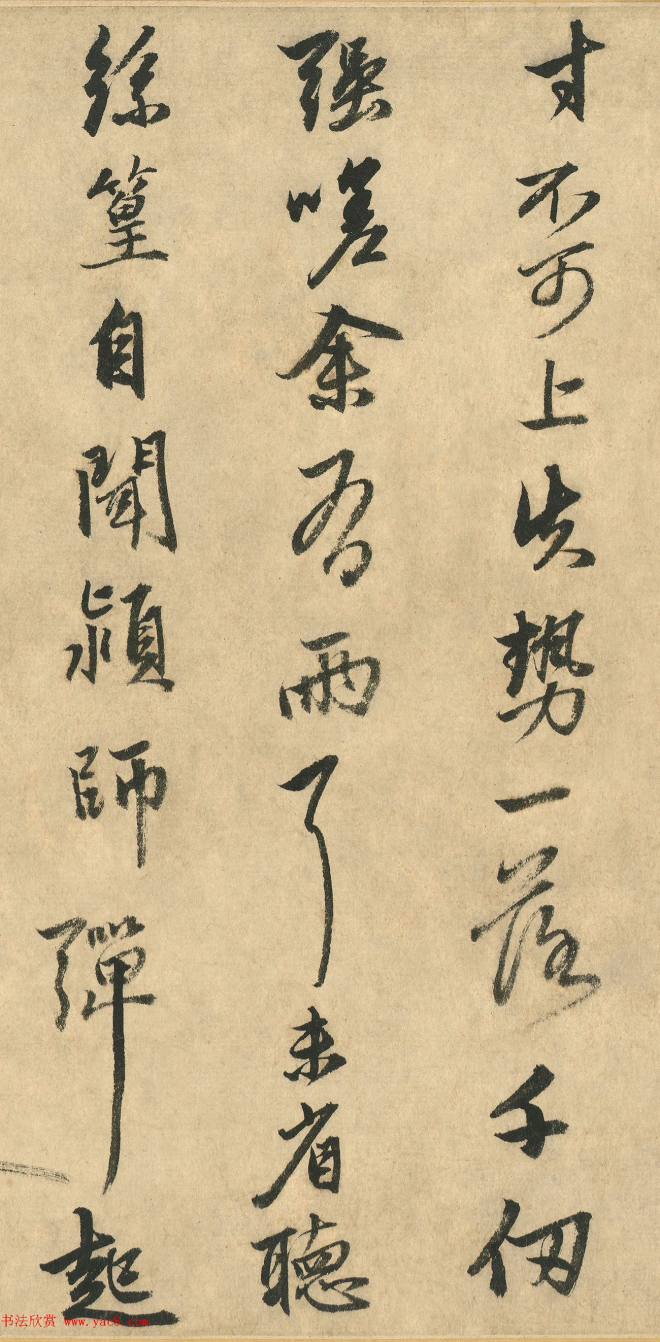 寸不可上失勢一落千仞
强嗟余有兩耳未省聽
絲篁自聞潁師彈起
书法欣赏 www.yac8.com